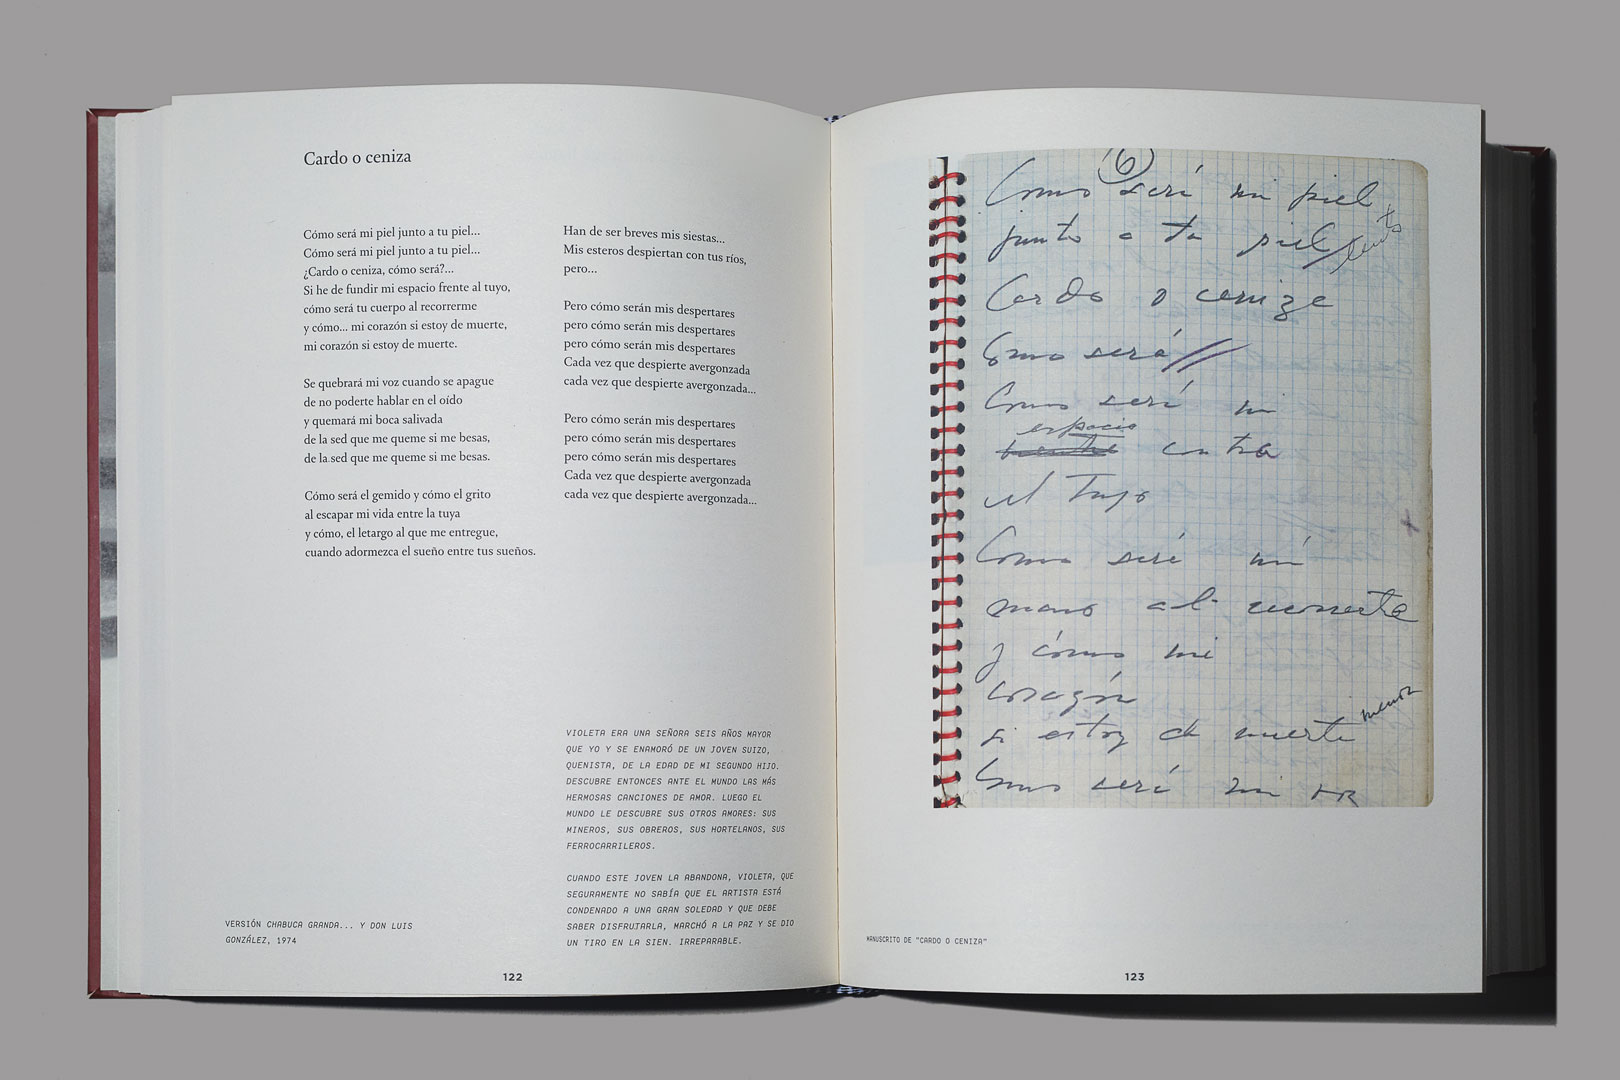 Cardo o ceniza
Cómo será mi piel junto a tu piel...
Cómo será mi piel junto a tu piel...
¿Cardo o ceniza, cómo será?...
Si he de fundir mi espacio frente al tuyo,
cómo será tu cuerpo al recorrerme
y cómo... mi corazón si estoy de muerte,
mi corazón si estoy de muerte.
Se quebrará mi voz cuando se apague
de no poderte hablar en el oído
y quemará mi boca salivada
de la sed que me queme si me besas,
de la sed que me queme si me besas.
Cómo será el gemido y cómo el grito
al escapar mi vida entre la tuya
y cómo, el letargo al que me entregue,
cuando adormezca el sueño entre tus sueños.
Han de ser breves mis siestas...
Mis esteros despiertan con tus ríos,
pero...
Pero cómo serán mis despertares
pero cómo serán mis despertares
pero cómo serán mis despertares
Cada vez que despierte avergonzada
cada vez que despierte avergonzada...
Pero cómo serán mis despertares
pero cómo serán mis despertares
pero cómo serán mis despertares
Cada vez que despierte avergonzada
cada vez que despierte avergonzada...
VIOLETA ERA UNA SEÑORA SEIS AÑOS MAYOR
QUE YO Y SE ENAMORÓ DE UN JOVEN SUIZO,
QUENISTA, DE LA EDAD DE MI SEGUNDO HIJO.
DESCUBRE ENTONCES ANTE EL MUNDO LAS MÁS
HERMOSAS CANCIONES DE AMOR. LUEGO EL
MUNDO LE DESCUBRE SUS OTROS AMORES: SUS
MINEROS, SUS OBREROS, SUS HORTELANOS, SUS
FERROCARRILEROS.
CUANDO ESTE JOVEN LA ABANDONA, VIOLETA, QUE
SEGURAMENTE NO SABÍA QUE EL ARTISTA ESTÁ
CONDENADO A UNA GRAN SOLEDAD Y QUE DEBE
SABER DISFRUTARLA, MARCHÓ A LA PAZ Y SE DIO
UN TIRO EN LA SIEN. IRREPARABLE.
VERSIÓN CHABUCA GRANDA... Y DON LUIS
GONZÁLEZ, 1974
122
6
Como será mi piel
junto a tu piel
Cardo o ceniza
Como será
Como será mi
espacio contra
el Tuyo
Como será mi
mano al recorrerte
y cómo mi
corazón
si estoy de muerte
menor
Como será mi
MANUSCRITO DE "CARDO O CENIZA"
123